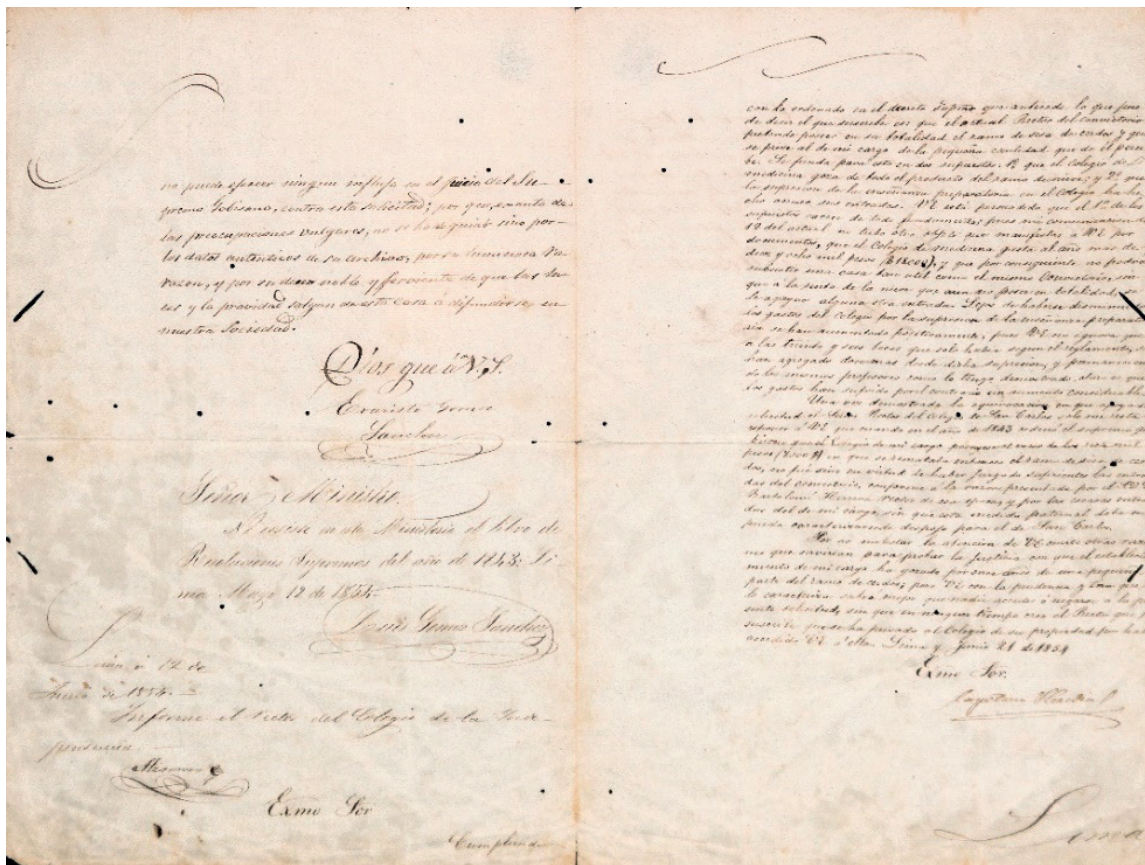 no puede ejercer ningun influjo en el juicio del Su-
premo Gobierno, contra esta solicitud; por que, exenta de
las preocupaciones vulgares, no se ha de guiar sino por
los datos autenticos de su archivo, por su luminosa
razon, y por su deseo noble y ferviente de que las lu-
ces y la providad salgan de esta casa a difundirse en
nuestra Sociedad.
Dios gue. á V.S.
Evaristo Gomez
Sanchez
Señor Ministro.
No existe en este Ministerio el libro de
Resoluciones Supremas del año de 1843. Li-
ma Mayo 12 de 1854.
Luis Gomez Sanchez
Lima á 12 de
Junio de 1854.
Informe el Rector del Colegio de la Inde-
pendencia.
Exmo Sor
Cumpliendo
con lo ordenado en el decreto Supmo que antecede lo que pue-
de decir el que suscribe es que el actual Rector del Convictorio
pretende poseer en su totalidad el ramo de sisa de cerdos y que
se prive al de mi cargo de la pequeña cantidad que de él perci-
be. Se funda para esto en dos supuestos: 1º que el Colegio de
medicina goza de todo el producto del ramo de nieve; y 2º que
la supresion de la enseñanza preparatoria en el Colegio ha he-
cho escusa sus entradas. VE está persuadido que el 1º de los
supuestos carece de todo fundamento; pues mi comunicacion
12 del actual en dicho otro objeto que manifesté a VE por
documentos, que el Colegio de medicina gasta al año mas de
diez y ocho mil pesos ($18000), y que por consiguiente no podria
subsistir una casa tan util como el mismo Convictorio, sin
que a la renta de la nieve que aun que posea en totalidad, se
le agregue alguna otra entrada. Lejos de haberse disminuido
los gastos del Colegio por la supresion de la enseñanza prepara-
toria se han aumentado positivamente, pues VE no ignora que
a las treinta y seis becas que solo habia segun el reglamento, se
han agregado doce mas desde dicha supresion, y permaneciendo
los mismos profesores como lo tengo demostrado, claro es que
los gastos han sufrido por el contrario un aumento considerable.
Una vez demostrada la equivocacion en que apoya su
solicitud el Señor Rector del Colegio de San Carlos, solo me resta
esponer á VE que cuando en el año de 1843 ordenó el supremo go-
bierno que el Colegio de mi cargo percibiese de los siete mil
pesos (7000$) en que se remataba entonces el ramo de sisa de cer-
dos, no fué sino en virtud de haber juzgado suficientes las entra-
das del convictorio, conforme á la razon presentada por el Sor D.
Bartolomé Herrera rector de esa epoca, y por las escasas entra-
das del de mi cargo, sin que esta medida paternal deba ni
pueda caracterizarse de despojo para el de San Carlos.
Por no molestar la atencion de VE omito otras razo-
nes que servirian para probar la Justicia con que el estableci-
miento de mi cargo ha gozado por once años de una pequeña
parte del ramo de cerdos; pero VE con la prudencia y tino que
le caracteriza sabra mejor que nadie acceder ó negarse á la pre-
sente solicitud, sin que en ningun tiempo crea el Rector que
suscribe que se ha privado al Colegio de su propiedad por haber
accedido VE á ella. Lima y Junio 21 de 1854
Exmo Sor.
Cayetano Heredia
Lima